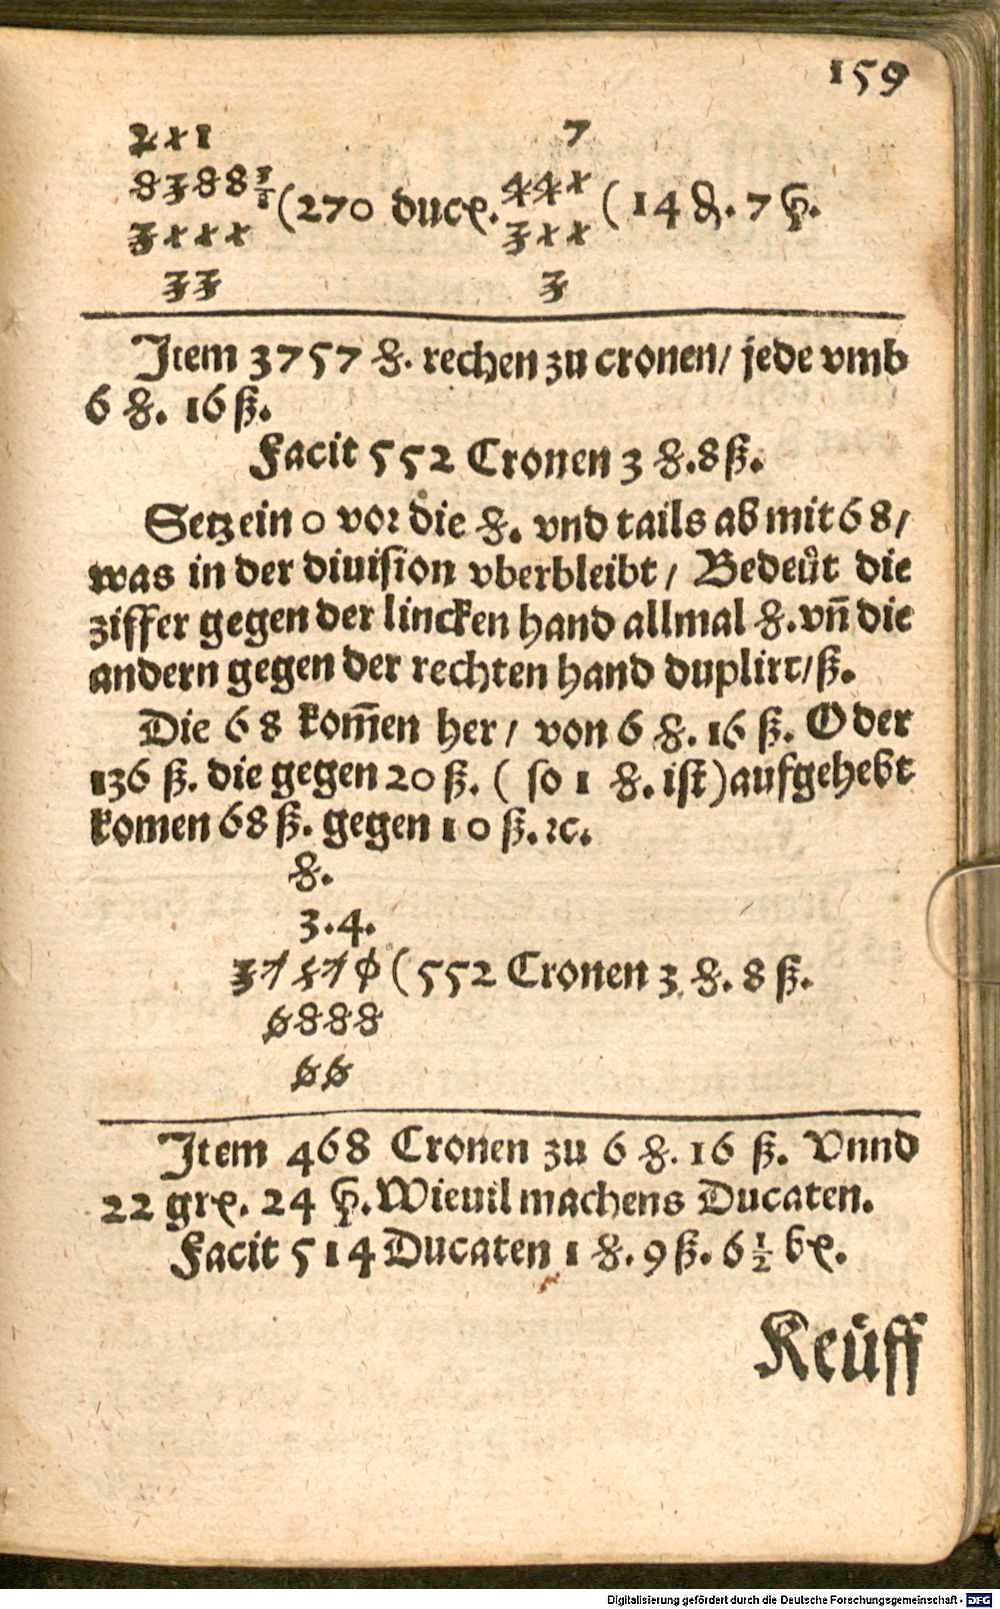 159
2 x 1 7
8 3 8 8 3/2 (270 ducꝭ. 4 4 x ( 14 ₰. 7 hꝭ.
3 x x x 3 x x
3 3 3
Jtem 3757 fl. rechen zu cronen/ jede vmb
6 fl. 16 ß.
Facit 552 Cronen 3 fl. 8 ß.
Setz ein 0 vor die fl. vnd tails ab mit 68/
was in der diuision vberbleibt/ Bedeuͦt die
ziffer gegen der lincken hand allmal fl. vn̄ die
andern gegen der rechten hand duplirt/ ß.
Die 68 kom̄en her/ von 6 fl. 16 ß. Oder
136 ß. die gegen 20 ß. ( so 1 fl. ist) aufgehebt
komen 68 ß. gegen 10 ß. ꝛc.
fl.
3.4.
3 7 5 7 0 (552 Cronen 3 fl. 8 ß.
6 8 8 8
6 6
Jtem 468 Cronen zu 6 fl. 16 ß. Vnnd
22 grꝭ. 24 hꝭ. Wieuil machens Ducaten.
Facit 514 Ducaten 1 fl. 9 ß. 6 1/2 bꝭ.
Keuͦff
Digitalisierung gefördert durch die Deutsche Forschungsgemeinschaft - DFG